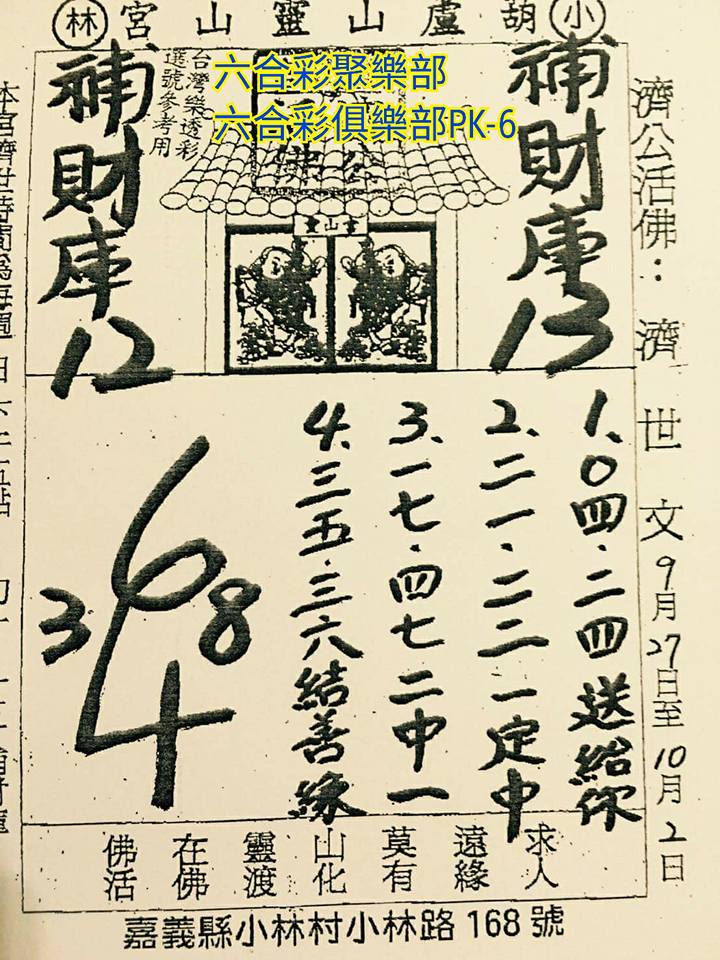 小胡盧山靈山宮林
六合彩聚樂部
六合彩俱樂部PK-6
台灣樂透彩
選號參考用
濟公活佛：濟世文9月27日至10月2日
補財庫13
靈山宮
補財庫12
1、0四·二四送給你
2、二一·二三一定中
3、一七·四七二中一
4、三五·三六結善緣
6
3 8
4
佛在靈山莫遠求
活佛渡化有緣人
嘉義縣小林村小林路168號
本宮濟世時間為每週日下午五點